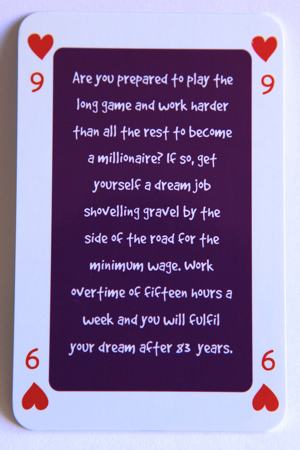 9 9
Are you prepared to play the
long game and work harder
than all the rest to become
a millionaire? If so, get
yourself a dream job
shovelling gravel by the
side of the road for the
minimum wage. Work
overtime of fifteen hours a
week and you will fulfil
your dream after 83 years.
9 9